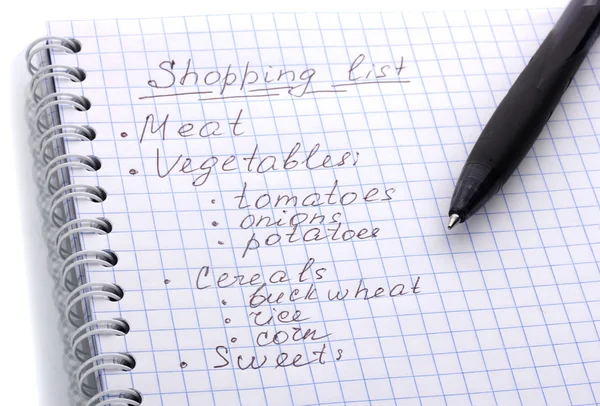 Shopping list
• Meat
• Vegetables:
• tomatoes
• onions
• potatoes
• Cereals
• buckwheat
• rice
• corn
• Sweets